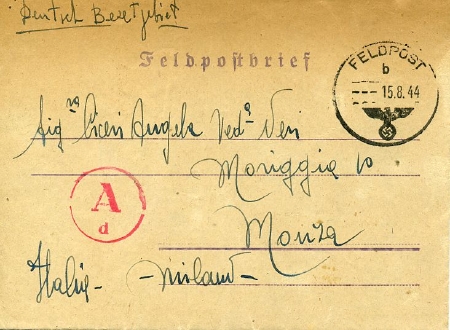 Deutsch Besetgebiet
Feldpostbrief
FELDPOST
b
15.8.44
Sig.ra Ciceri Angela Ved.a
Moriggia 10
A
d
Monza
Italia - Milano -